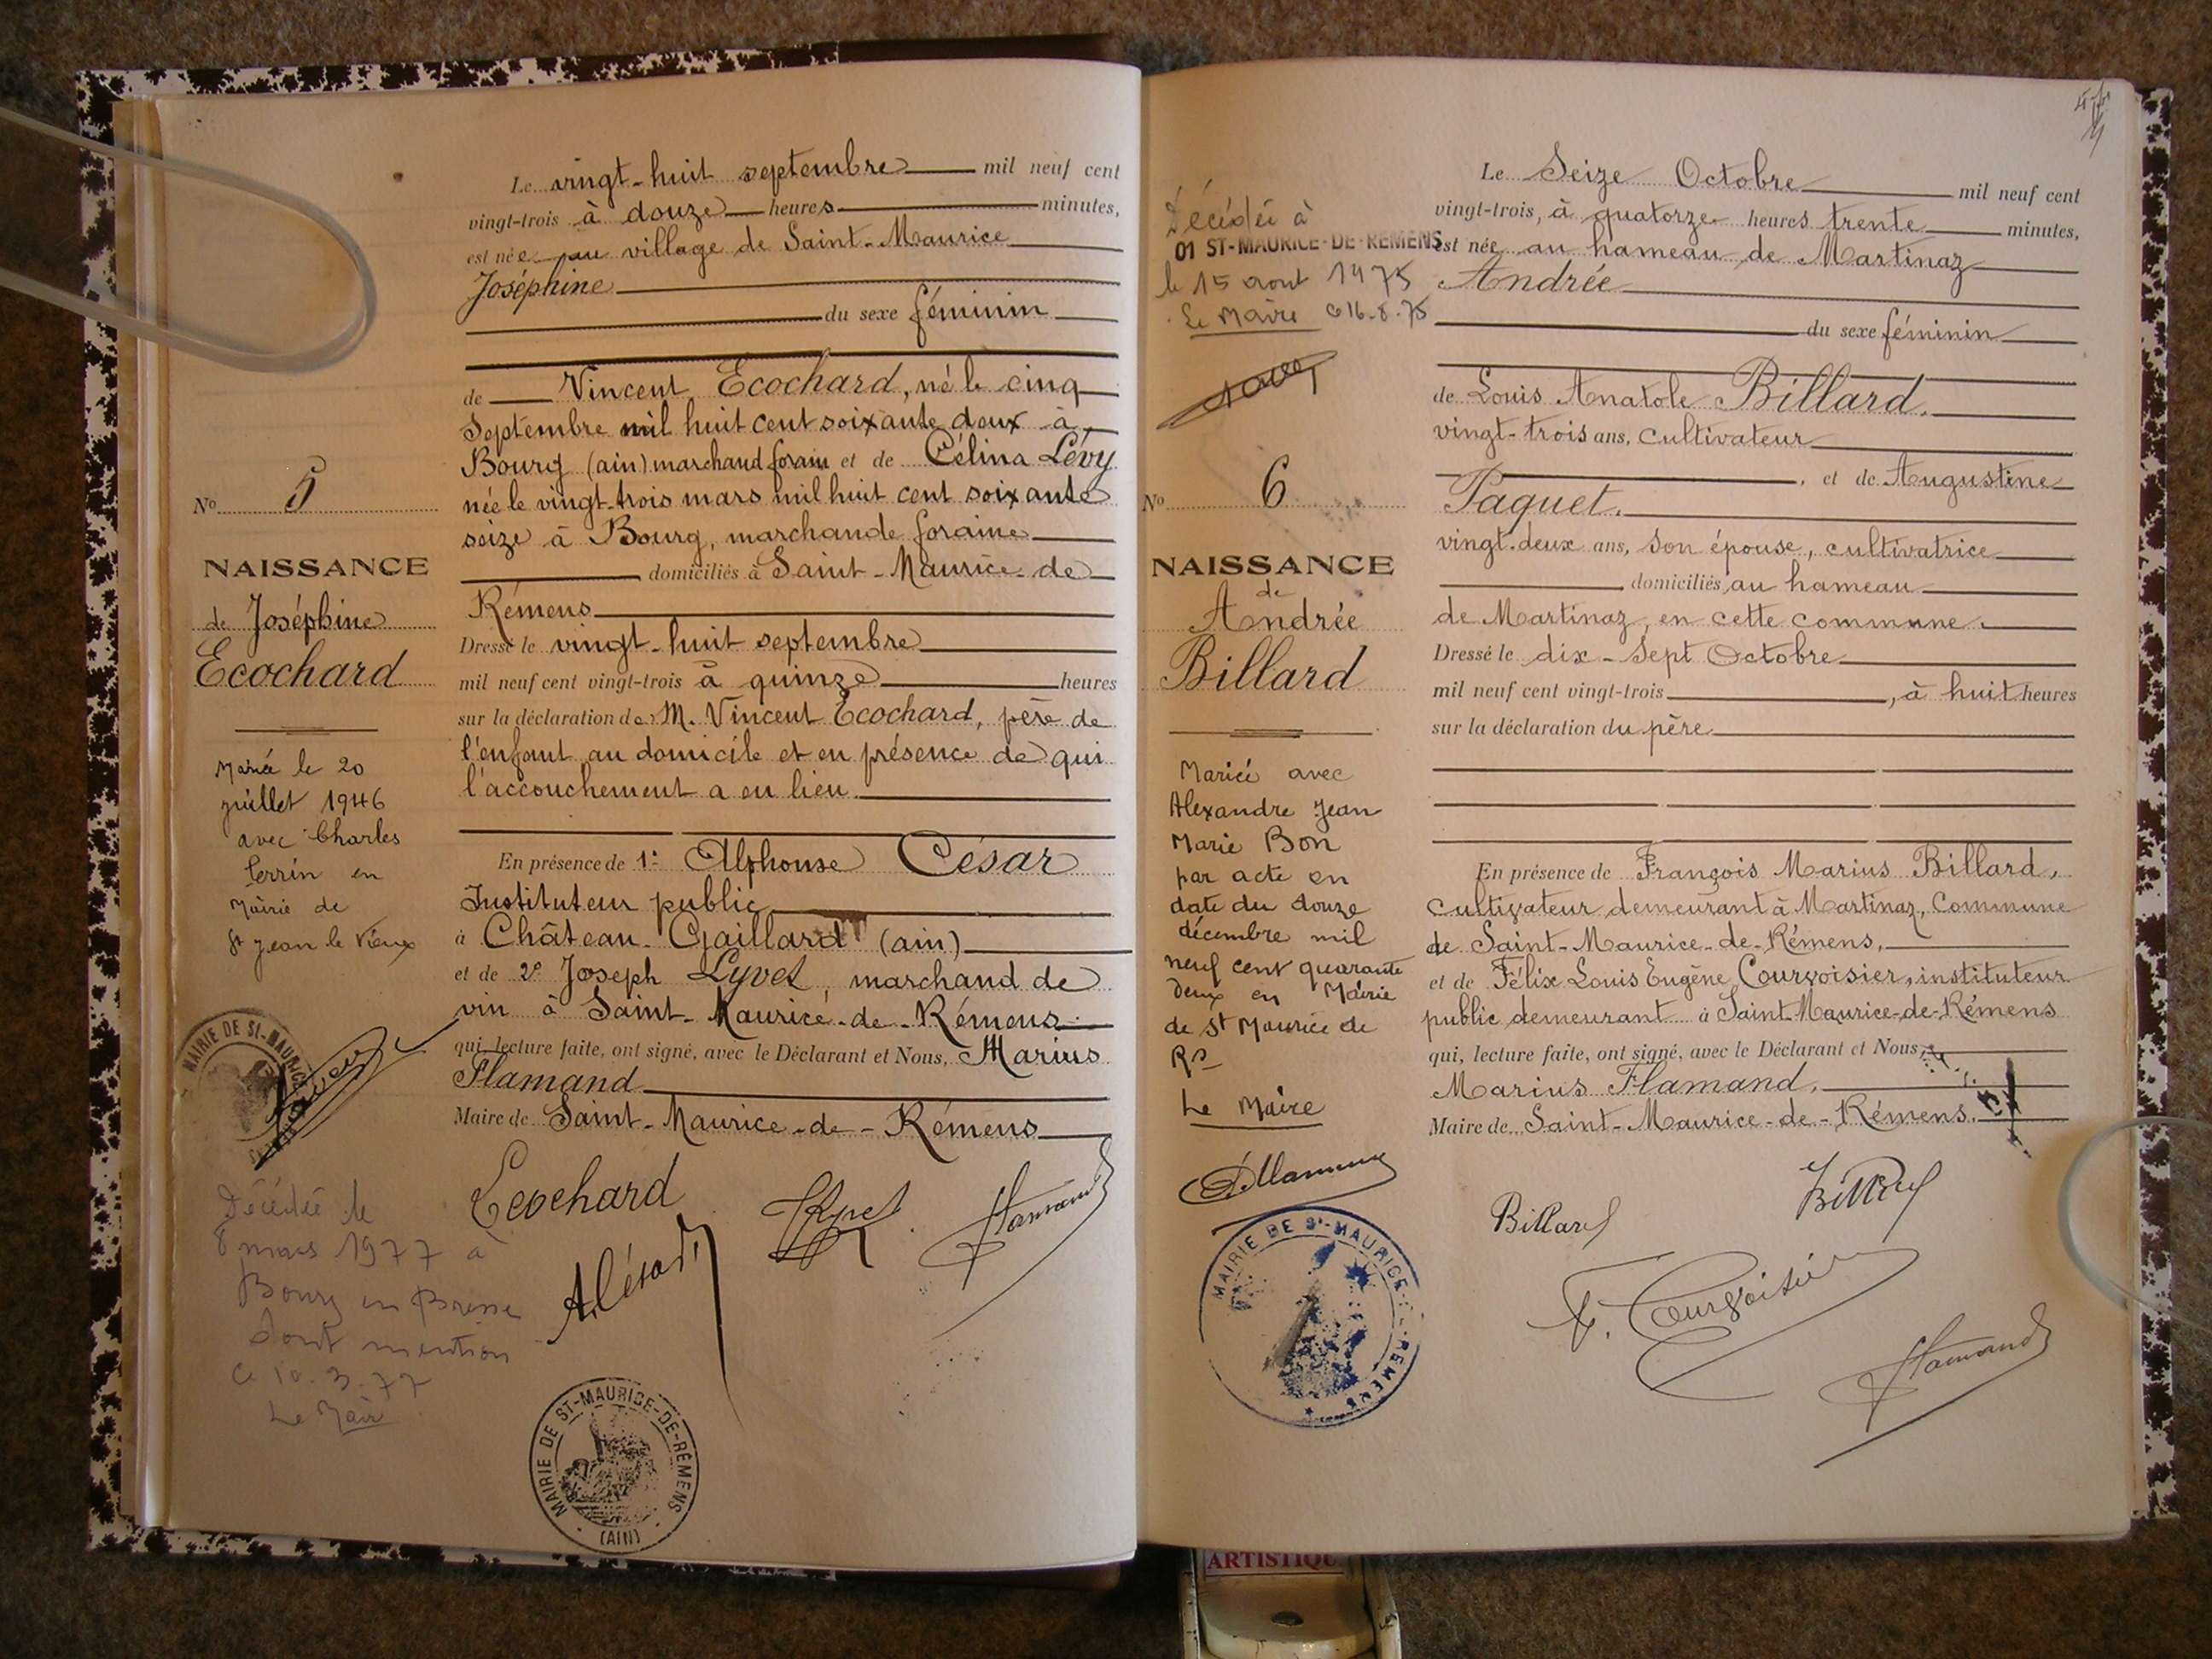 Le vingt-huit septembre mil neuf cent
vingt-trois à douze heures minutes,
est née au village de Saint-Maurice
Joséphine
du sexe féminin
de Vincent Ecochard, né le cinq
Septembre mil huit cent soixante deux à
Bourg (ain) marchand forain et de Célina Lévy
née le vingt-trois mars mil huit cent soixante
seize à Bourg, marchande foraine
domiciliés à Saint-Maurice-de
Rémens
Dressé le vingt-huit septembre
mil neuf cent vingt-trois à quinze heures
sur la déclaration de M. Vincent Ecochard, père de
l'enfant au domicile et en présence de qui
l'accouchement a eu lieu.
En présence de 1° Alphonse César
Instituteur public
à Château-Gaillard (ain)
et de 2° Joseph Lyvet, marchand de
vin à Saint-Maurice-de-Rémens
qui, lecture faite, ont signé, avec le Déclarant et Nous, Marius
Flamand
Maire de Saint-Maurice-de-Rémens
Ecochard
A. César
Flamand
MAIRIE DE ST-MAURICE-DE-RÉMENS
(AIN)
No 5
NAISSANCE
de Joséphine
Ecochard
Mariée le 20
juillet 1946
avec Charles
Perrin en
Mairie de
St Jean le Vieux
MAIRIE DE ST-MAURICE
Décédée le
8 mars 1977 à
Bourg en Bresse
Dont mention
Ce 10.3.77
Le Maire
Décédée à
01 ST-MAURICE-DE-REMENS
le 15 aout 1975
Le Maire ce 16-8-75
No 6
NAISSANCE
de
Andrée
Billard
Mariée avec
Alexandre Jean
Marie Bon
par acte en
date du douze
décembre mil
neuf cent quarante
deux en Mairie
de St Maurice de
Rs
Le Maire
MAIRIE DE St-MAURICE-DE-RÉMENS
Le Seize Octobre mil neuf cent
vingt-trois, à quatorze heures trente minutes,
est née au hameau de Martinaz
Andrée
du sexe féminin
de Louis Anatole Billard,
vingt-trois ans, cultivateur
, et de Augustine
Paquet,
vingt-deux ans, son épouse, cultivatrice
domiciliés au hameau
de Martinaz, en cette commune.
Dressé le dix-sept Octobre
mil neuf cent vingt-trois, à huit heures
sur la déclaration du père
En présence de François Marius Billard,
Cultivateur demeurant à Martinaz, Commune
de Saint-Maurice-de-Rémens,
et de Félix Louis Eugène Courvoisier, instituteur
public demeurant à Saint-Maurice-de-Rémens
qui, lecture faite, ont signé, avec le Déclarant et Nous,
Marius Flamand,
Maire de Saint-Maurice-de-Rémens.
Billard
Billard
F. Courvoisier
Flamand
ARTISTIQU